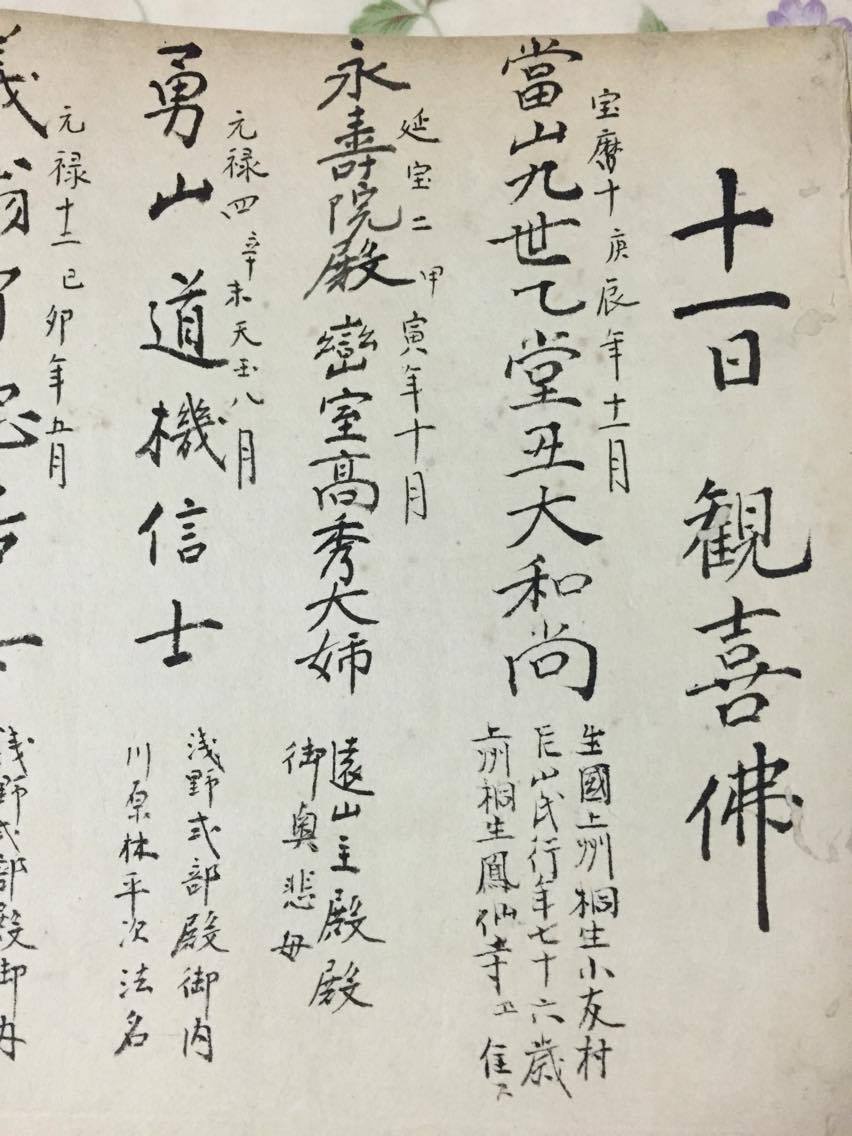 十一日 観喜佛
宝暦十庚辰年十一月
當山九世乙堂丑大和尚
生國上州桐生小友村
山氏行年七十六歳
上州桐生鳳仙寺ヱ住ス
延宝二甲寅年十月
永壽院殿巒室高秀大姉
遠山主殿殿
御奥悲母
元禄四辛未天八月
勇山道機信士
浅野式部殿御内
川原林平次法名
元禄十二己卯年五月
義翁
浅野式部殿御内